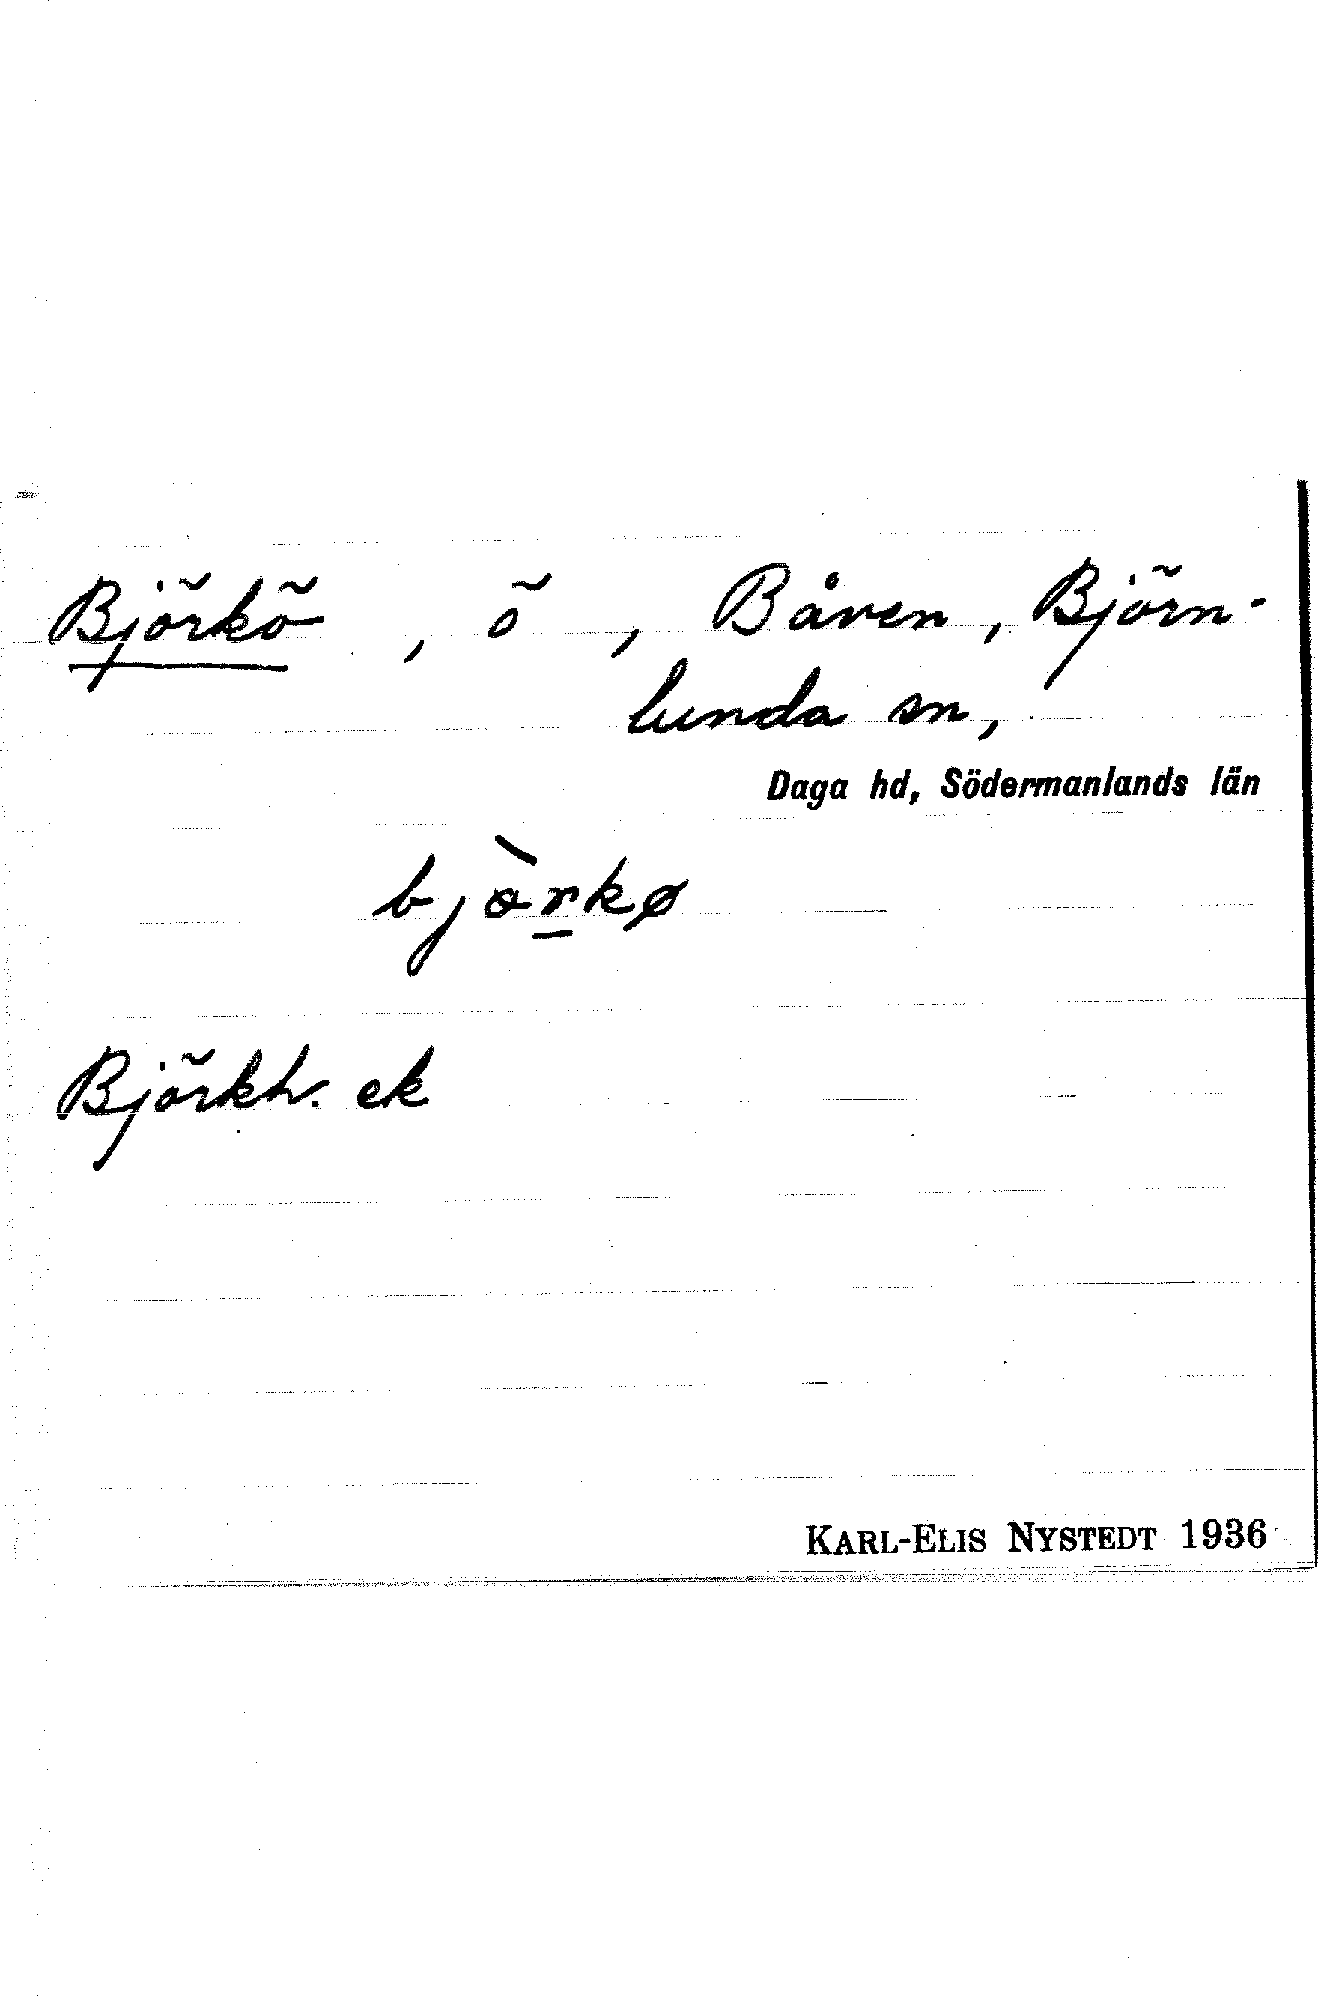 Björkö, ö, Båven, Björn-
lunda sn,
Daga hd, Södermanlands län
bjòrkø
Björkh. ek
KARL-ELIS NYSTEDT 1936